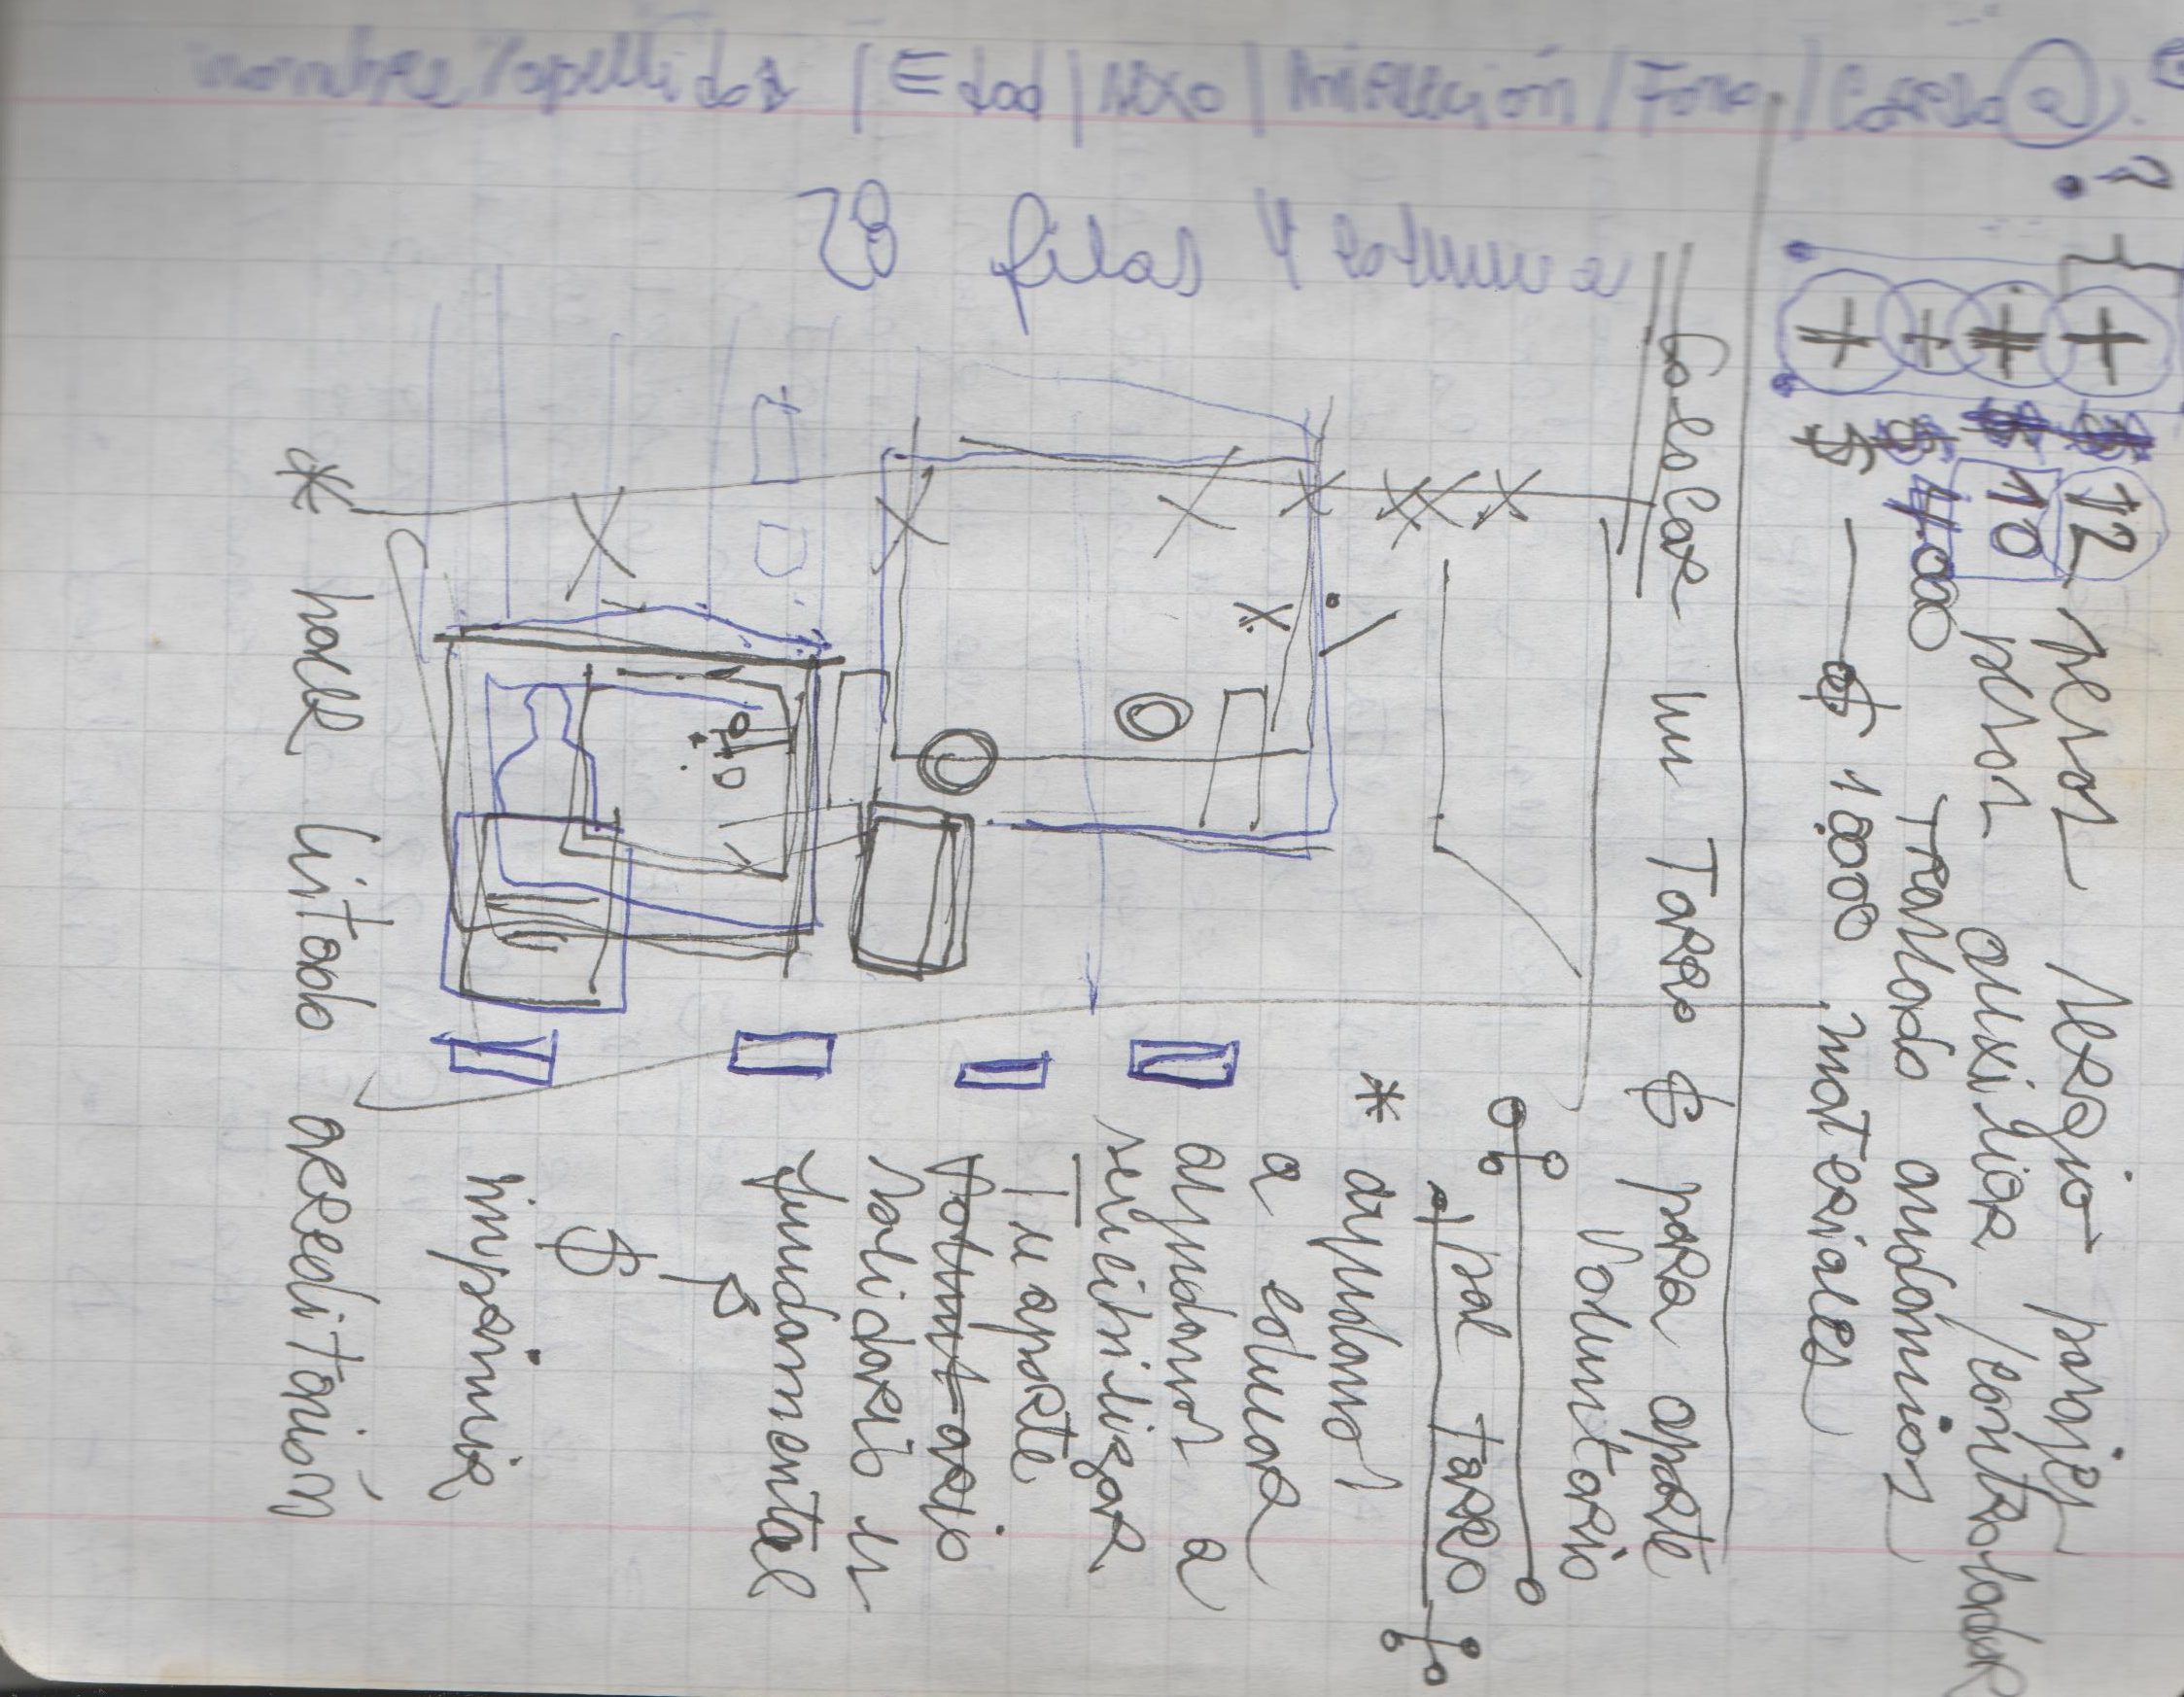 nombre/apellidos / Edad / sexo / Dirección / Fono / Correo @
28 filas 4 columna
+ $ 12 persos Sergio pasajes
+ $ 10 persos auxiliar / controlador
+ $ 4.000 traslado andamios
+ $ — $ 10000 materiales
Colocar un Tarro $ para aporte
voluntario
pal Tarro
* ayudanos
a educar
ayudanos a
sensibilizar
Tu aporte
solidario es
fundamental
$
imprimir
* hacer listado acreditación